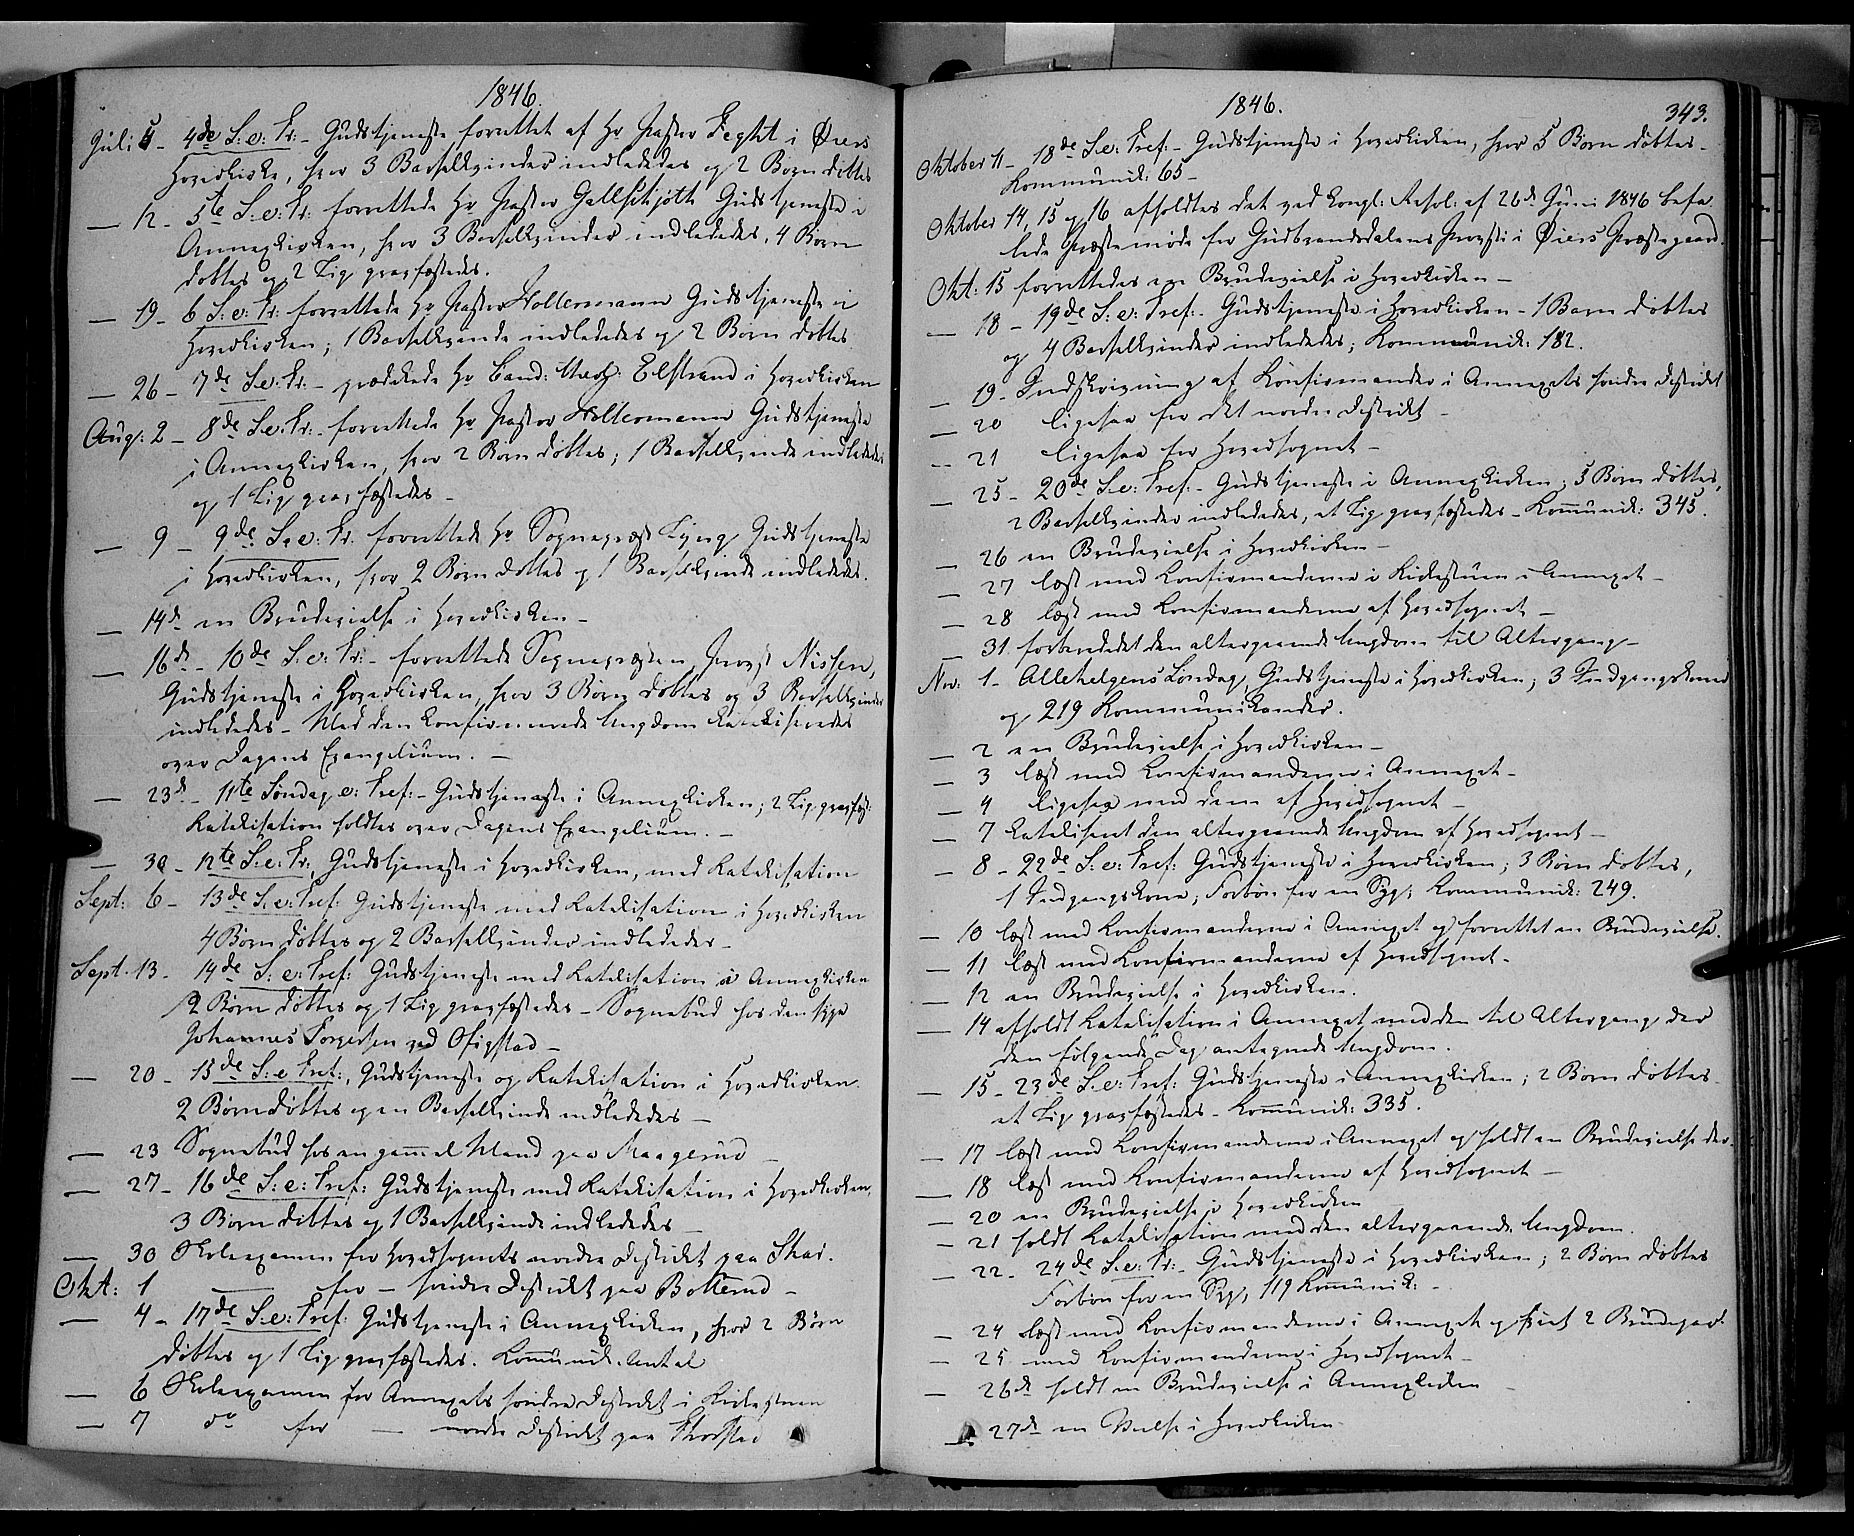 1846.
Juli 5 - 4de S. e. Tr. - Gudstjeneste forrettet af Hr Pastor Feght i Øiers
Hovedkirke, hvor 3 Barselkvinder indlededes og 2 Børn døbtes
— 12 - 5te S. e. Tr: forrettede Hr Pastor Gallschjøtt Gudstjeneste i
Annexkirken, hvor 3 Barselkvinder indlededes, 4 Børn
døbtes og 2 Lig gravfæstedes.
— 19 - 6 S. e. Tr: forrettede Hr Pastor Holtermann Gudstjeneste i
Hovedkirken; 1 Barselkvinde indlededes og 2 Børn døbtes
— 26 - 7de S. e. Tr: - prædikede Hr Cand: Theol: Elstrand i Hovedkirken
Aug: 2 - 8de S. e. Tr: - forrettede Hr Pastor Holtermann Gudstjeneste
i Annexkirken, hvor 2 Børn døbtes; 1 Barselkvinde indlededes
og 1 Lig gravfæstedes -
— 9 - 9de S. e. Tr. forrettede Hr Sognepræst Lyng Gudstjeneste
i Hovedkirken, hvor 2 Børn døbtes og 1 Barselkvinde indlededes.
— 14d en Brudevielse i Hovedkirken -
— 16d - 10de S. e. Tr: - forrettede Sognepræsten, Provst Nissen,
Gudstjeneste i Hovedkirken, hvor 3 Børn døbtes og 3 Barselkvinder
indlededes - Med den konfirmerede Ungdom katekiseredes
over Dagens Evangelium. -
— 23d - 11te Søndag e: Tref: - Gudstjeneste i Annexkirken; 2 Lig gravfæst:
Katekisation holdtes over Dagens Evangelium. -
— 30 - 12te S. e: Tr: Gudstjeneste i Hovedkirken, med Katekisation
Sept: 6 - 13de S. e: Tref: Gudstjeneste med Katekisation i Hovedkirken
4 Børn døbtes og 2 Barselkvinder indlededes -
Sept. 13 - 14de S: e: Tref: Gudstjeneste med Katekisation i Annexkirken
2 Børn døbtes og 1 Lig gravfæstedes - Sognebud hos den syge
Johannes Torgersen ved Ofigstad -
— 20 - 15de S: e Tref:, Gudstjeneste og Katekisation i Hovedkirken
2 Børn døbtes og en Barselkvinde indlededes -
— 23 Sognebud hos en gammel Mand paa Maagerud -
— 27 - 16de S: e: Tref: Gudstjeneste med Katekisation i Hovedkirken,
3 Børn døbtes og 1 Barselkvinde indlededes -
— 30 Skoleexamen for Hovedsognets nordre Distrikt paa Skar.
Okt: 1 — for - søndre Distrikt paa Botterud -
— 4 - 17de S: e: Tref: Gudstjeneste i Annexkirken, hvor 2 Børn
døbtes og 1 Lig gravfæstedes. Kommunik: Antal
— 6 Skoleexamen for Annexets søndre Distrikt i Kirkestuen
— 7 do for — nordre Distrikt paa
1846.
343.
Oktober 11 - 18de S. e: Tref: - Gudstjeneste i Hovedkirken, hvor 5 Børn døbtes -
Kommunik: 65 -
Oktober 14, 15 og 16 afholdtes det ved kongl: Resol: af 26d Juni 1846 befa-
lede Præstemøde for Gudbrandsdalens Provsti i Øiers Præstegaard.
Okt: 15 forrettedes en Brudevielse i Hovedkirken -
— 18 - 19de S: e: Tref: - Gudstjeneste i Hovedkirken - 1 Barn døbtes
og 4 Barselkvinder indlededes; Kommunik: 182.
— 19 - Indskrivning af Konfirmander i Annexets søndre Distrikt
— 20 ligesaa for det nordre Distrikt -
— 21 ligesaa for Hovedsognet -
— 25 - 20de S. e: Tref: - Gudstjeneste i Annexkirken; 5 Børn døbtes,
2 Barselkvinder indlededes, et Lig gravfæstedes - Kommunik: 345.
— 26 en Brudevielse i Hovedkirken -
— 27 læst med Konfirmanderne i Kirkestuen i Annexet -
— 28 læst med Konfirmanderne af Hovedsognet -
— 31 forberedet den altergaaende Ungdom til Altergang -
Nov: 1 - Allehelgens Søndag, Gudstjeneste i Hovedkirken; 3 Indgangskoner
og 219 Kommunikander.
— 2 en Brudevielse i Hovedkirken -
— 3 læst med Konfirmanderne i Annexet -
— 4 ligesaa med dem af Hovedsognet -
— 7 katekiseret den altergaaende Ungdom af Hovedsognet -
— 8 - 22de S: e: Tref: Gudstjeneste i Hovedkirken; 3 Børn døbtes,
1 Indgangskone, Forbøn for en Syg; Kommunik: 249.
— 10 læst med Konfirmanderne i Annexet og forrettet en Brudevielse.
— 11 læst med Konfirmanderne af Hovedsognet -
— 12 en Brudevielse i Hovedkirken.
— 14 afholdt Katekisation i Annexet med den til Altergang der
den følgende Dag antegnede Ungdom.
— 15 - 23de S. e: Tref: Gudstjeneste i Annexkirken; 2 Børn døbtes -
et Lig gravfæstedes - Kommunik: 335.
— 17 læst med Konfirmanderne i Annexet og holdt en Brudevielse der.
— 18 læst med Konfirmanderne af Hovedsognet -
— 20 en Brudevielse i Hovedkirken
— 21 holdt Katekisation med den altergaaende Ungdom.
— 22 - 24de S. e: Tr: - Gudstjeneste i Hovedkirken; 2 Børn døbtes
Forbøn for en Syg, 119 Kommunik: -
— 24 læst med Konfirmanderne i Annexet og viet 2 Brudepar
— 25 med Konfirmanderne i Hovedsognet -
— 26d holdt en Brudevielse i Annexkirken
— 27d en Vielse i Hovedkirken -